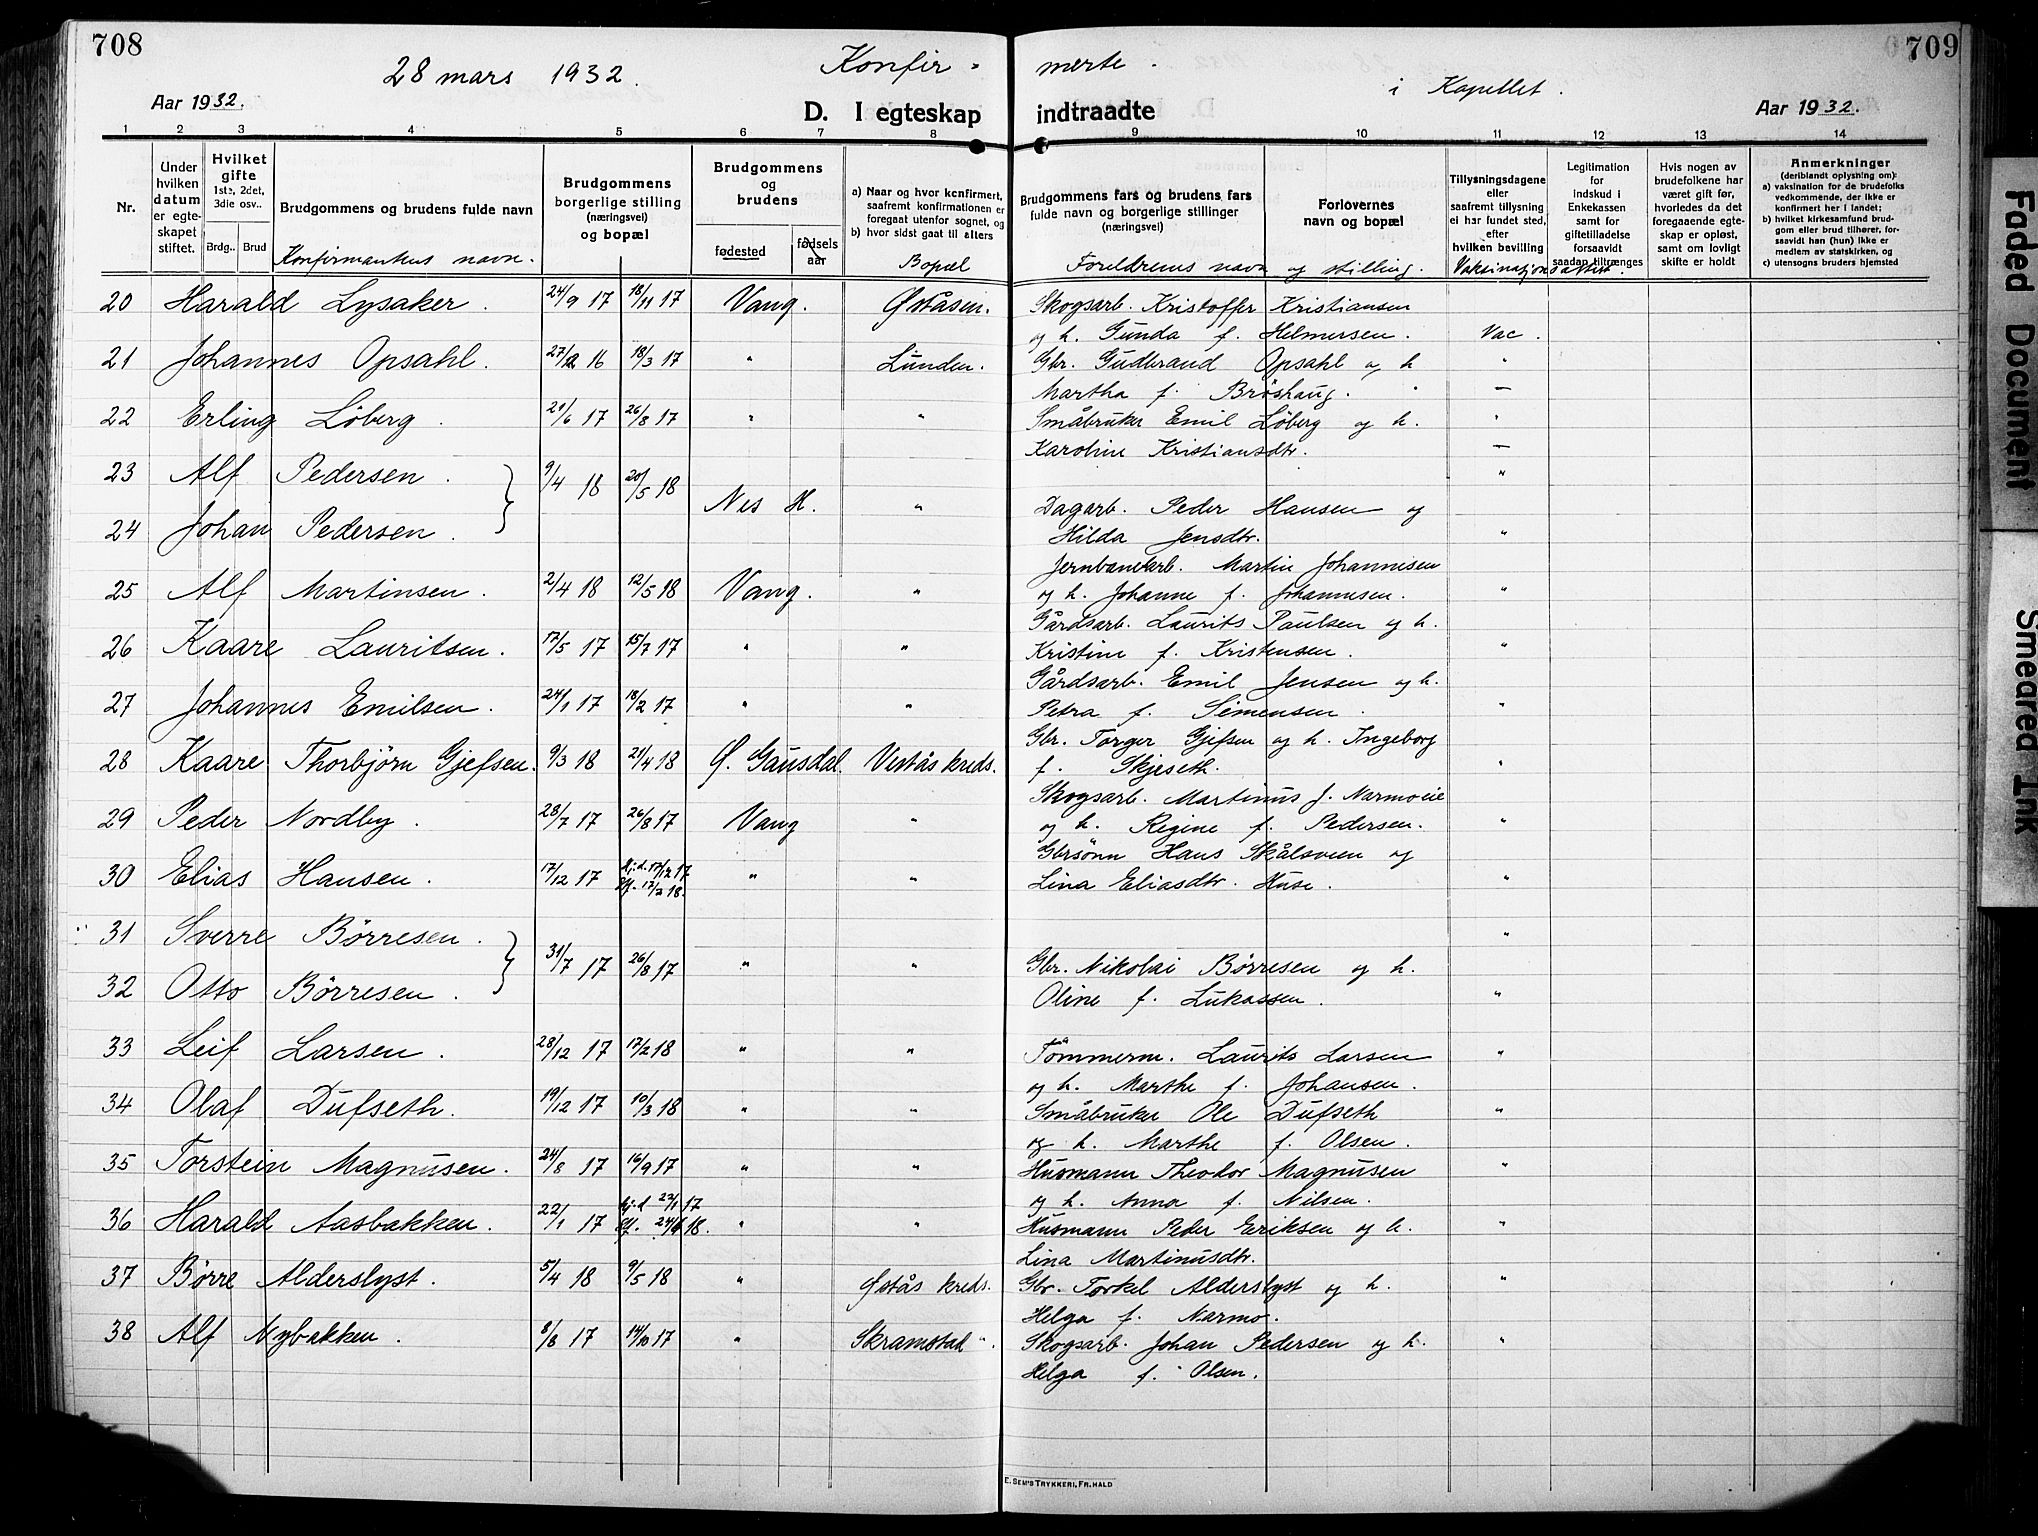 708
28 mars 1932.
Konfir-
Aar 1932.
D. I egteskap
1 2 3 4 5 6 7 8
Nr.
Under hvilken datum er egteskapet stiftet.
Hvilket gifte 1ste, 2det, 3die osv..
Brdg.. Brud
Brudgommens og brudens fulde navn
Konfirmantens navn.
Brudgommens borgerlige stilling (næringsvei) og bopæl
Brudgommens og brudens
fødested
fødselsaar
a) Naar og hvor konfirmert, saafremt konfirmationen er foregaat utenfor sognet, og
b) hvor sidst gaat til alters
Bopæl
20 Harald Lysaker. 24/9 17 18/11 17 Vang. Øståsen.
21 Johannes Opsahl. 27/12 16 18/3 17 " Lunden.
22 Erling Løberg. 21/6 17 26/8 17 " "
23 Alf Pedersen. } 9/4 18 20/5 18 Nes H. "
24 Johan Pedersen. }
25 Alf Martinsen. 2/4 18 12/5 18 Vang. "
26 Kaare Lauritsen. 17/5 17 15/7 17 " "
27 Johannes Emilsen. 24/1 17 18/2 17 " "
28 Kaare Thorbjörn Gjefsen. 9/3 18 21/4 18 Ø. Gausdal. Veståskreds.
29 Peder Nordby. 28/7 17 26/8 17 Vang "
30 Elias Hansen. 17/12 17 Hj.d. 17/12 17 Stf. 17/2 18. " "
31 Sverre Børresen. } 31/7 17 26/8 17 " "
32 Otto Børresen. }
33 Leif Larsen. 28/12 17 17/2 18 " "
34 Olaf Dufseth. 19/12 17 10/3 18 " "
35 Torstein Magnusen. 24/8 17 16/9 17 " "
36 Harald Aasbakken. 22/1 17 Hj.d 22/1 17 " "
37 Børre Alderslyst. 5/4 18 9/5 18 " Øståskreds.
38 Alf Nybakken. 8/8 17 14/10 17 " Skramstad ".
709
merte.
i Kapellet.
indtraadte
Aar 1932.
9 10 11 12 13 14
Brudgommens fars og brudens fars fulde navn og borgerlige stillinger (næringsvei)
Foreldrenes navn og stilling.
Forlovernes navn og bopæl
Tillysningsdagene eller saafremt tillysning ei har fundet sted, efter hvilken bevilling
Vaksinationsattest.
Legitimation for indskud i Enkekassen samt for giftetilladelse forsaavidt saadan tiltrænges
Hvis nogen av brudefolkene har været gift før, hvorledes da det foregaaende egteskap er opløst, samt om lovligt skifte er holdt
Anmerkninger
(deriblandt oplysning om):
a) vaksination for de brudefolks vedkommende, der ikke er konfirmert her i landet;
b) hvilket kirkesamfund brudgom eller brud tilhører, forsaavidt han (hun) ikke er medlem av statskirken, og
c) utensogns bruders hjemsted
Skogsarb. Kristoffer Kristiansen
og h. Gunda f. Helmersen. Vac.
Gbr. Gudbrand Opsahl og h "
Martha f. Brøshaug. —
Småbruker Emil Løberg og h. "
Karoline Kristiansdtr. —
"
Dagarb. Peder Hansen og
Hilda Jensdtr. "
Jernbanearb. Martin Johannisen
og h. Johanne f. Johannesen. "
Gårdsarb. Laurits Paulsen og h.
Kristine f. Kristensen. "
Gårdsarb. Emil Jensen og h.
Petra f. Simensen. "
Gbr. Torger Gjefsen og h. Ingeborg
f. Skjeseth. "
Skogsarb. Martinus J. Narmoeie
og h. Regine f. Pedersen. "
Gbrsönn Hans Skålsveen og
Lina Eliasdtr. Huse. "
"
Gbr. Nikolai Børresen og h.
Oline f. Lukassen. "
Tømmerm. Laurits Larsen "
og h. Marthe f. Johansen.
Småbruker Ole Dufseth "
og h. Marthe f. Olsen.
Husmann Theodor Magnusen "
og h. Anna f. Nilsen.
Husmann Peder Eriksen og h. "
Lina Martinusdtr.
Gbr. Torkel Alderslyst og h. "
Helga f. Narmo.
Skogsarb. Johan Pedersen og h. "
Helga f. Olsen.
E. SEM'S TRYKKERI, FR.HALD
Faded Document
Smeared Ink